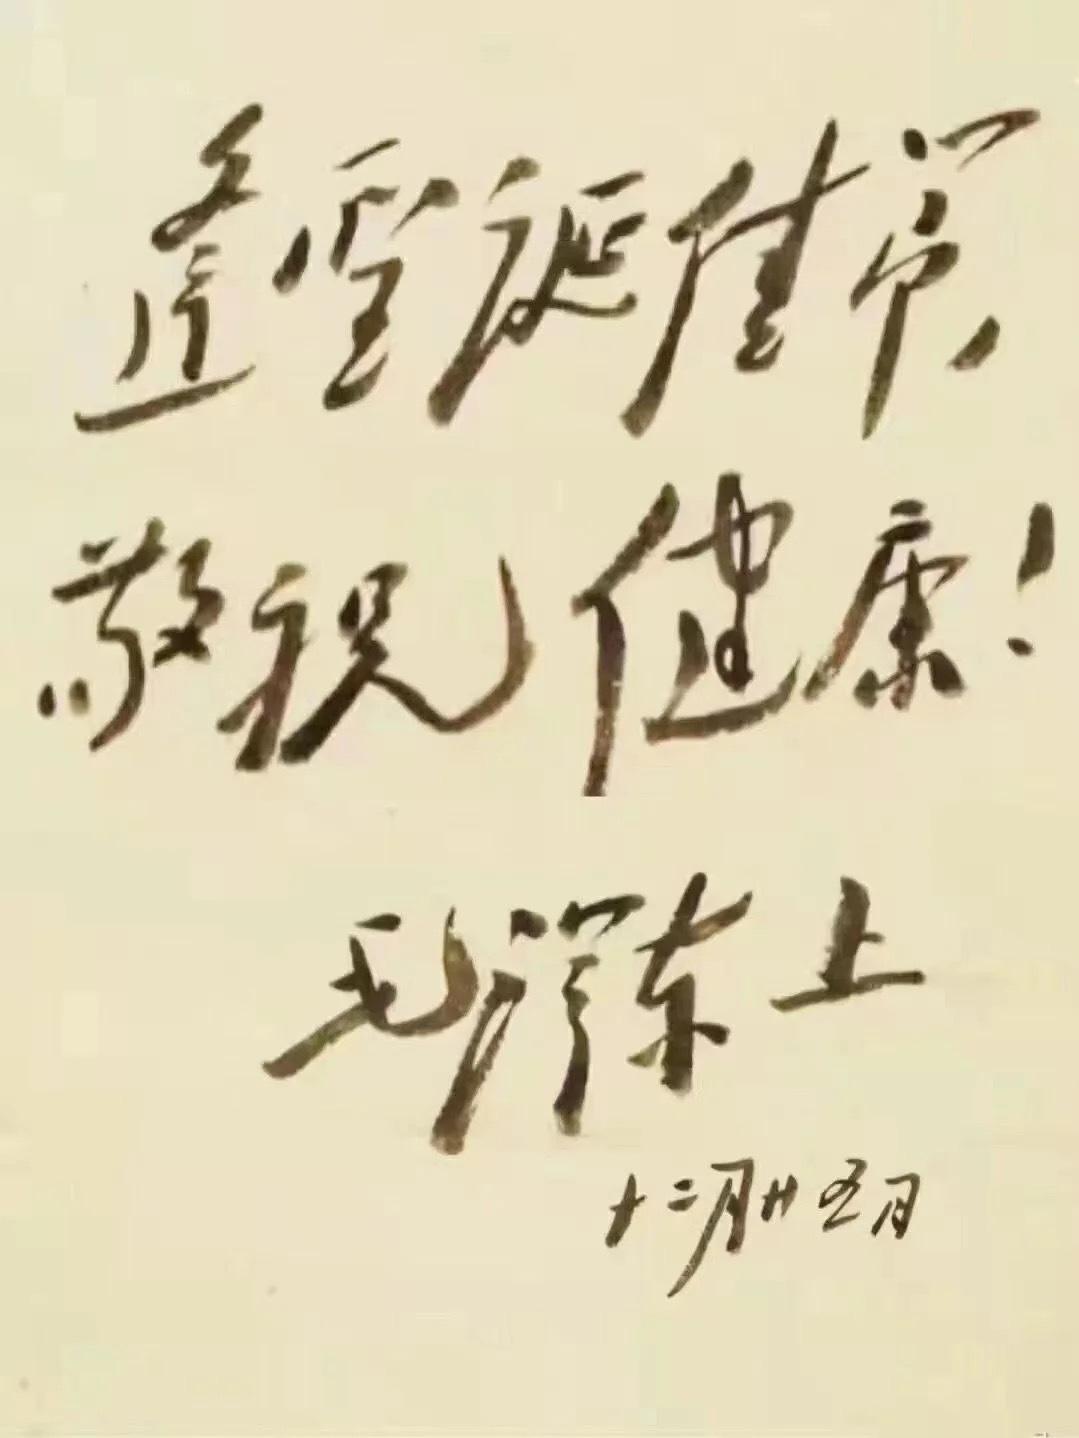 逢圣诞佳节，
敬祝健康！
毛泽东上
十二月廿五日